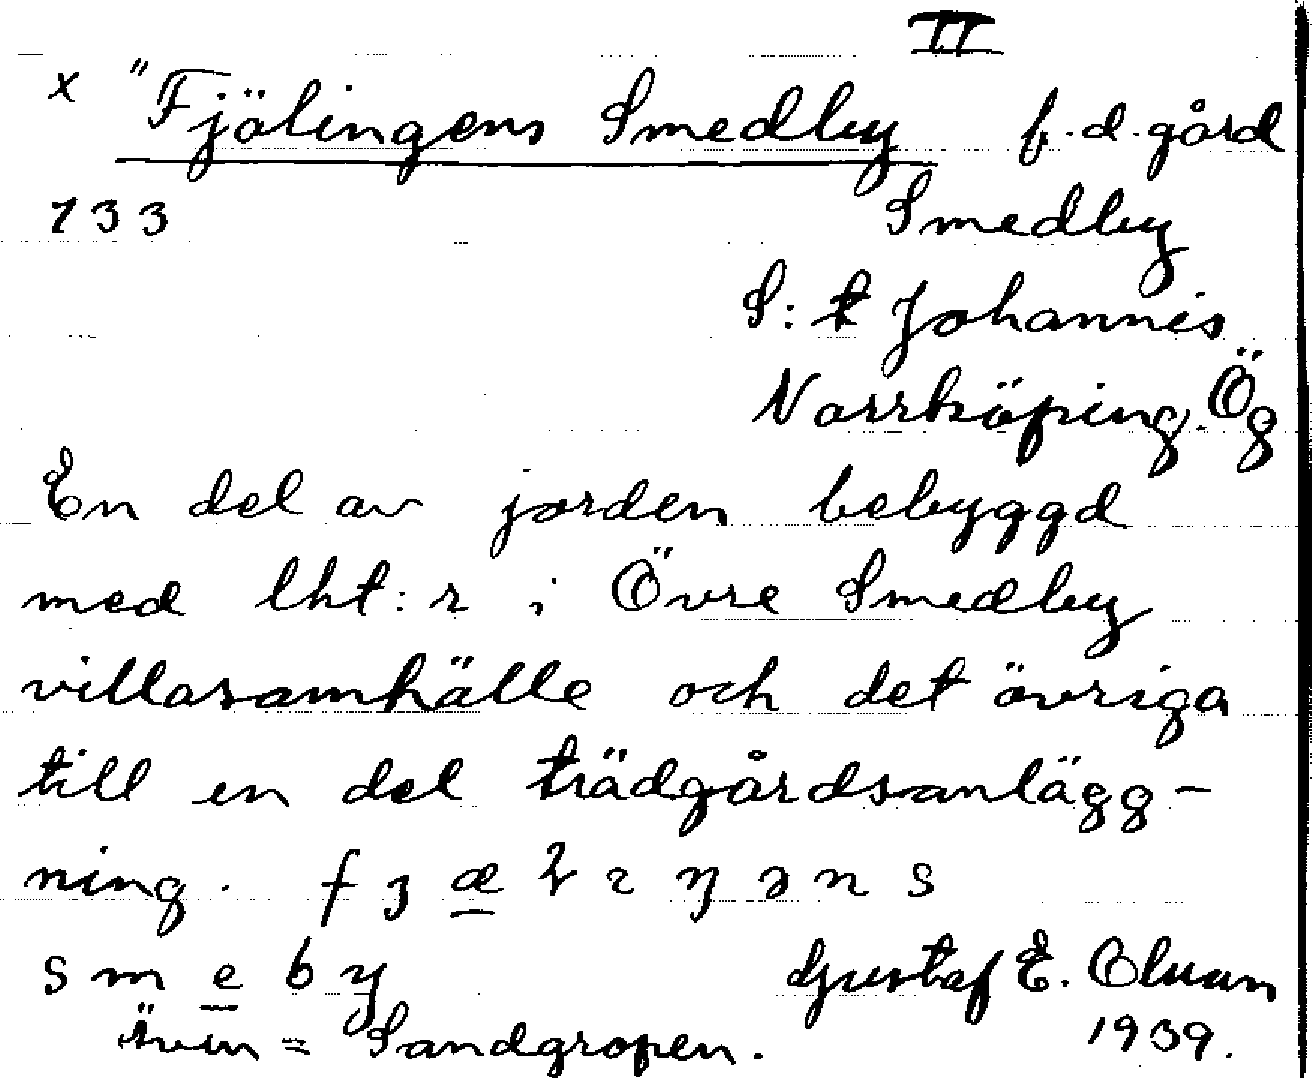 II
x "Fjälingens Smedby f.d. gård
133 Smedby
S:t Johannis
Norrköping. Ög
En del av jorden bebyggd
med lht:r i Övre Smedby
villasamhälle och det övriga
till en del trädgårdsanlägg-
ning.
smeby Gustaf E.
= Sandgropen. 1939.